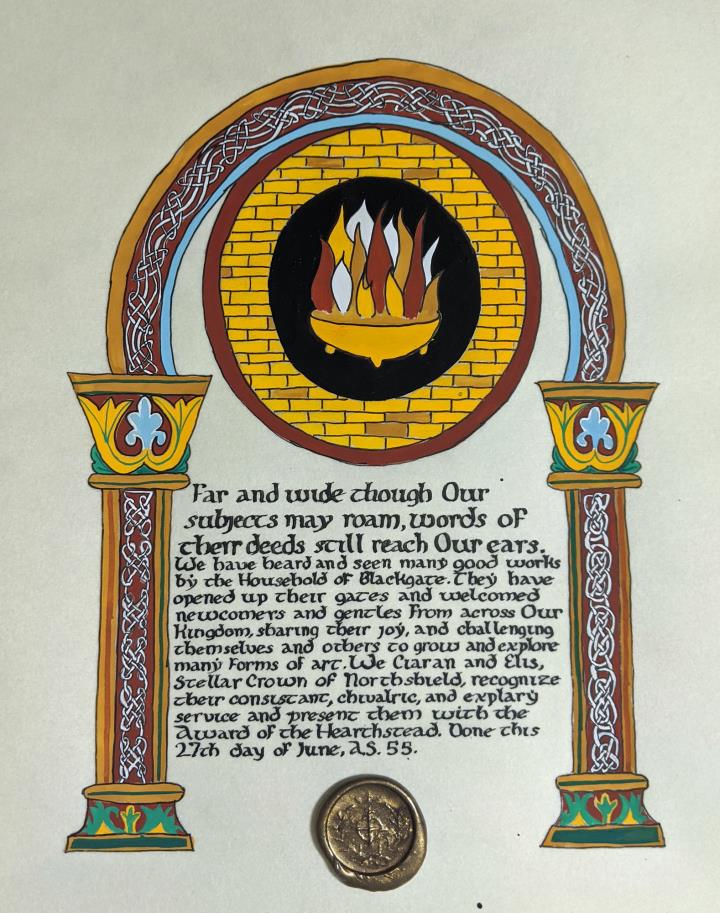 Far and wide though Our
subjects may roam, words of
their deeds still reach Our ears.
We have heard and seen many good works
by the Household of Blackgate. They have
opened up their gates and welcomed
newcomers and gentles From across Our
Kingdom, sharing their joy, and challenging
themselves and others to grow and explore
many Forms of art. We Ciaran and Elis,
Stellar Crown of Northshield, recognize
their consistant, chivalric, and explary
service and present them with the
Award of the Hearthstead. Done this
27th day of June, A.S. 55.